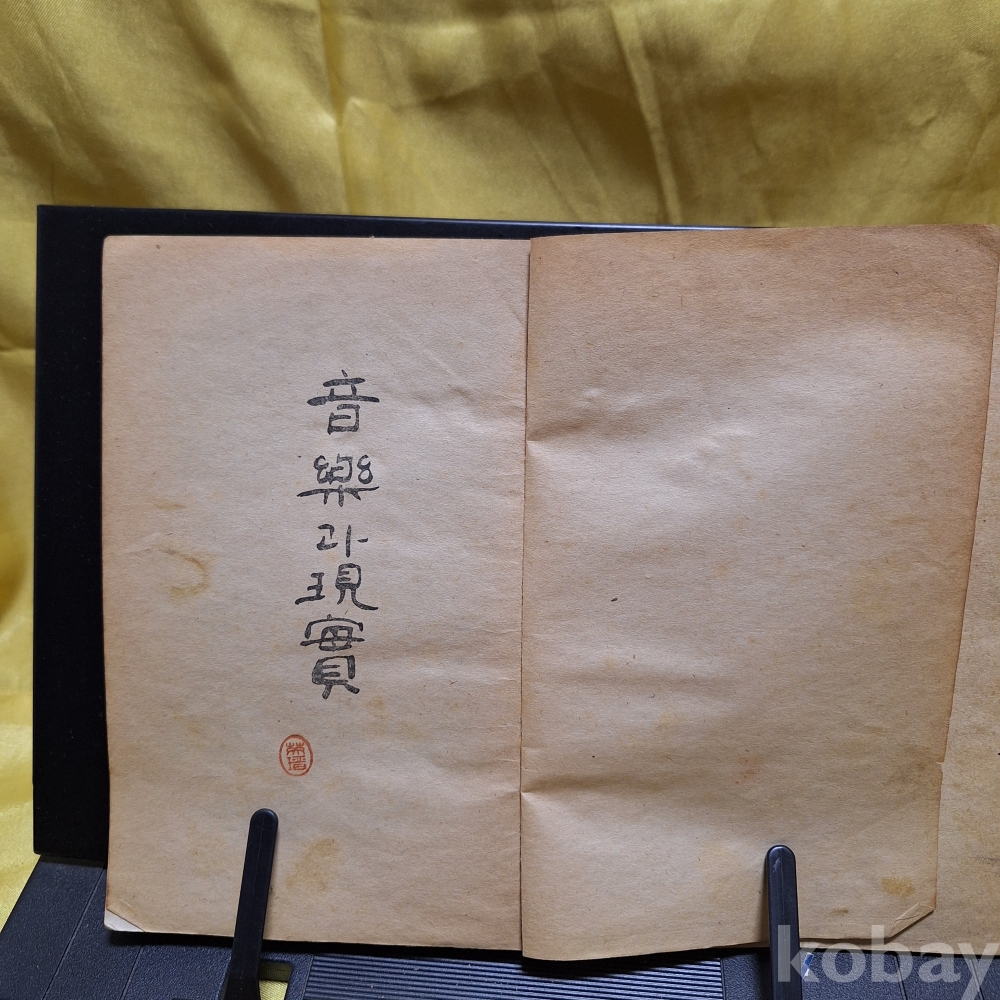 音樂과現實
kobay